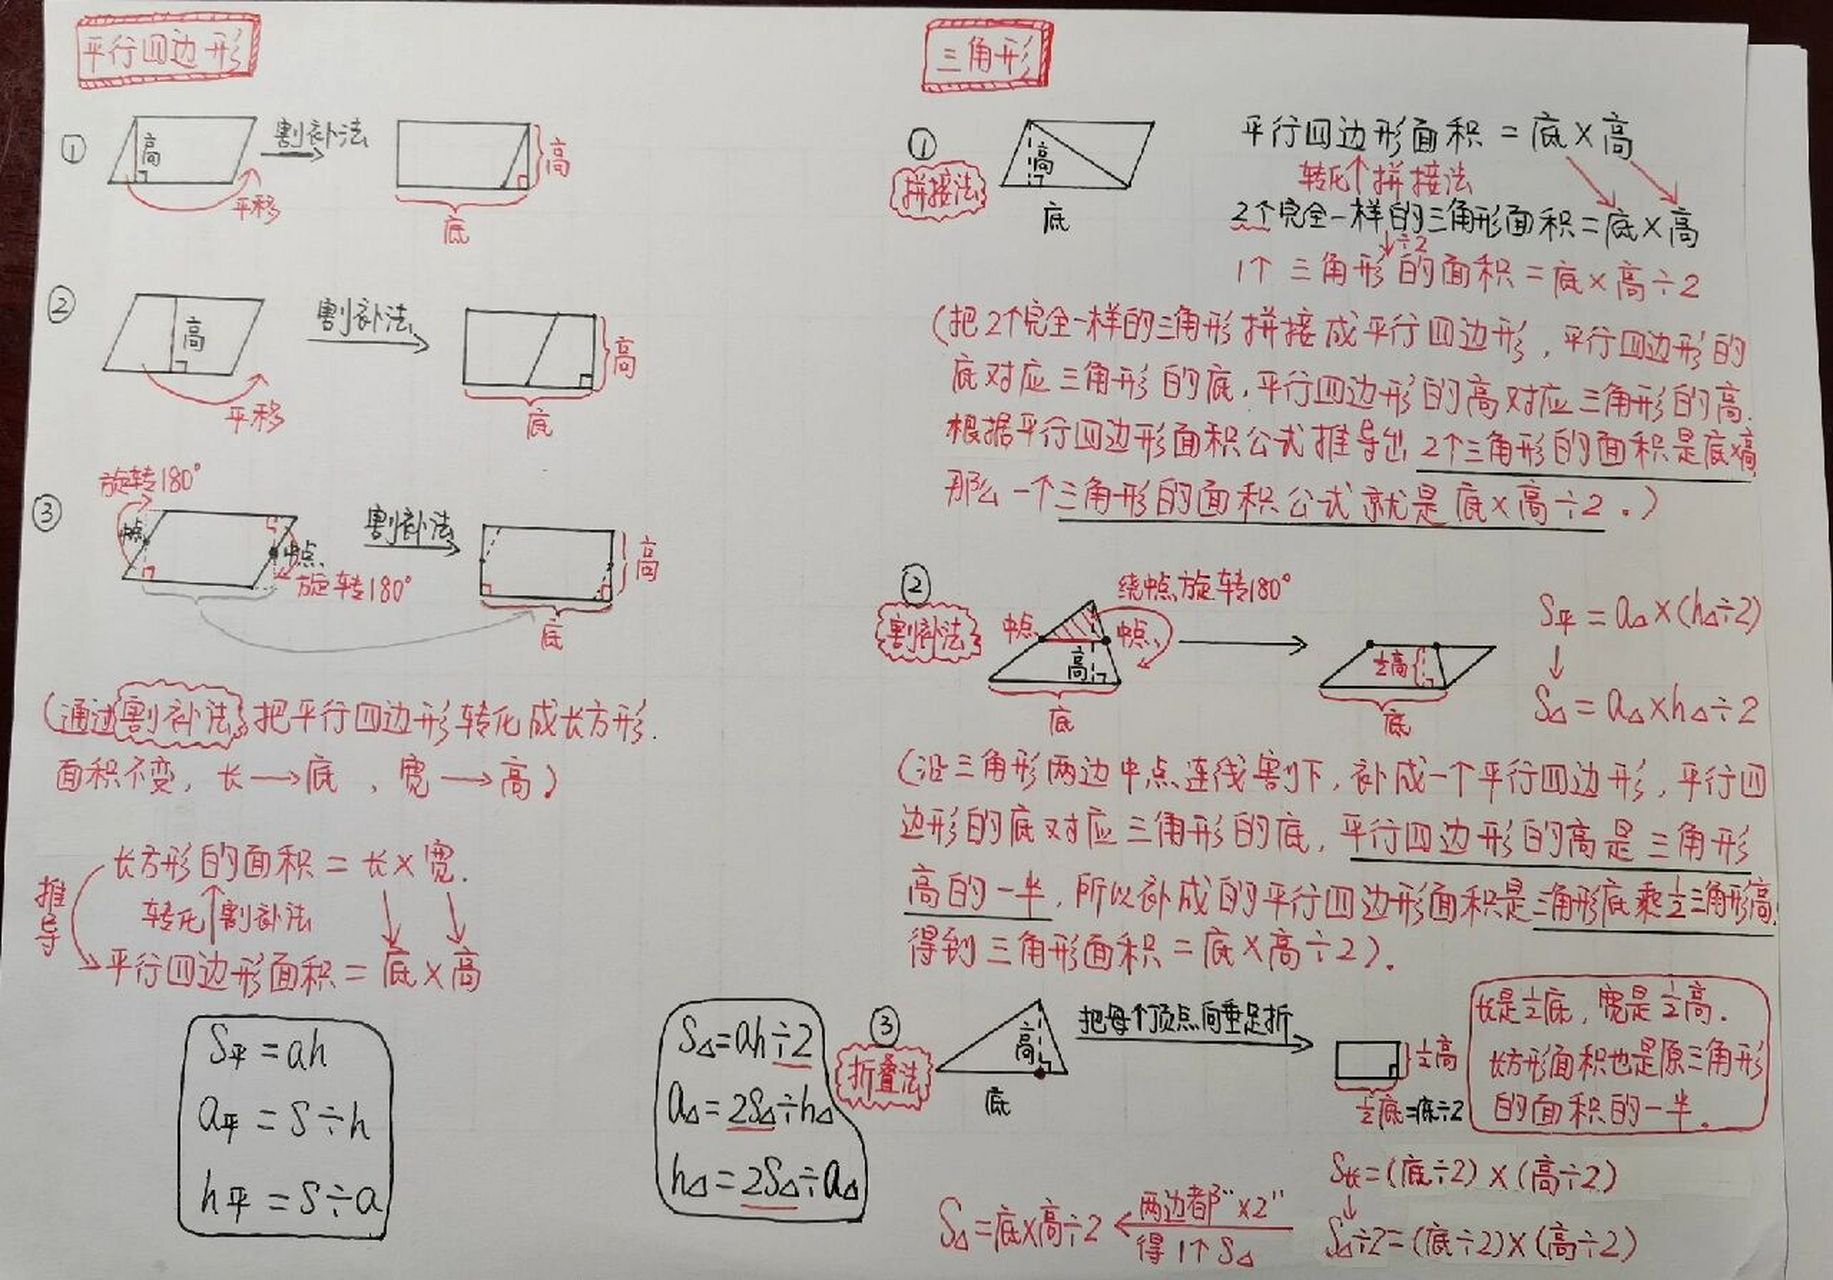 平行四边形
① 高 割补法 高
平移 底
② 高 割补法 高
平移 底
旋转180°
③ 中点 中点 割补法 高
旋转180° 底
(通过割补法,把平行四边形转化成长方形.
面积不变,长→底,宽→高)
长方形的面积=长×宽.
推导 转化↑割补法
平行四边形面积=底×高
S平=ah
a平=S÷h
h平=S÷a
三角形
① 高 平行四边形面积=底×高
拼接法 转化↑拼接法
底 2个完全一样的三角形面积=底×高
↓÷2
1个三角形的面积=底×高÷2
(把2个完全一样的三角形拼接成平行四边形,平行四边形的
底对应三角形的底,平行四边形的高对应三角形的高.
根据平行四边形面积公式推导出2个三角形的面积是底×高,
那么一个三角形的面积公式就是底×高÷2。)
② 绕中点旋转180° S平=a△×(h△÷2)
割补法 中点 中点 ↓
高 ½高 S△=a△×h△÷2
底 底
(沿三角形两边中点连线割下,补成一个平行四边形,平行四
边形的底对应三角形的底,平行四边形的高是三角形
高的一半,所以补成的平行四边形面积是三角形底乘½三角形高,
得到三角形面积=底×高÷2).
S△=ah÷2
a△=2S△÷h△
h△=2S△÷a△
③ 高 把每个顶点向垂足折
折叠法 底 ½高
½底=底÷2
长是½底,宽是½高.
长方形面积也是原三角形
的面积的一半.
S长=(底÷2)×(高÷2)
↓
S△÷2=(底÷2)×(高÷2)
两边都"×2"
得1个S△
S△=底×高÷2